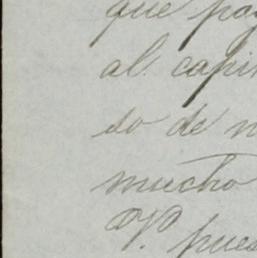 que pag
al capi
do de n
mucho
V. pues